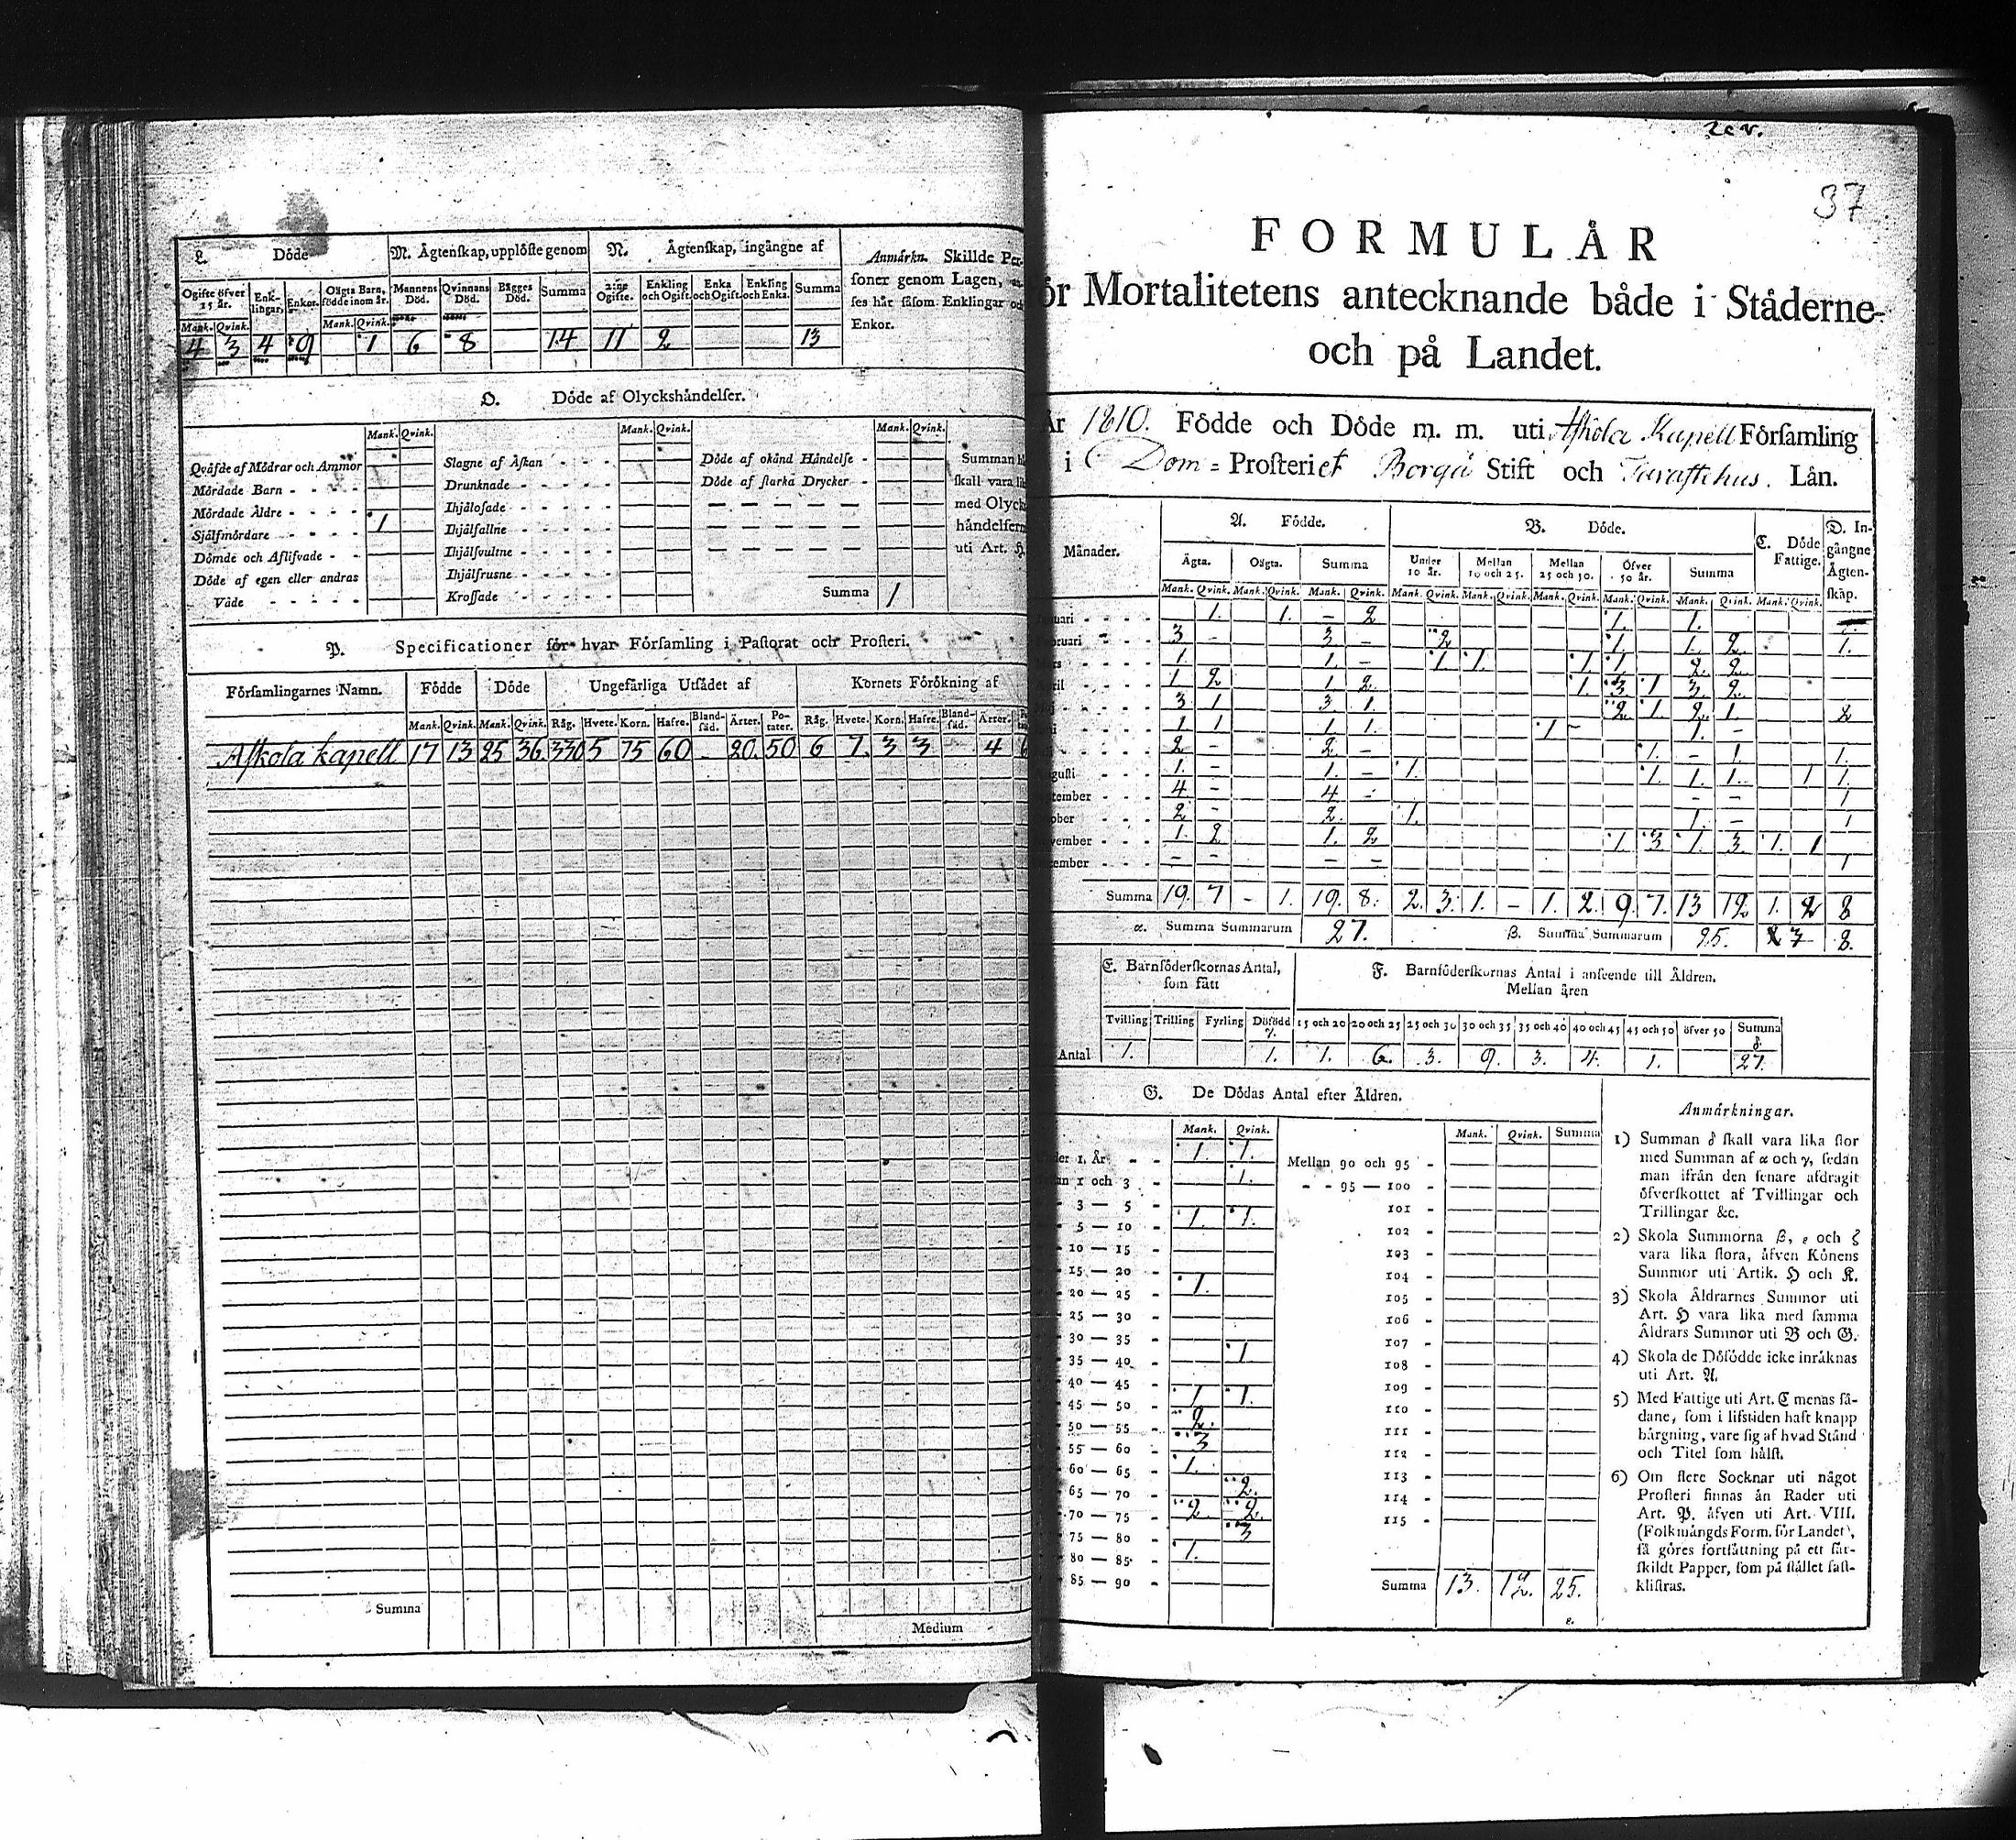 L. Döde
M. Ägtenskap, upplöste genom
N. Ägtenskap, ingångne af
Anmärkn. Skillde Per-
soner genom Lagen, an-
ses här såsom Enklingar och
Enkor.
Ogifte öfver 15 år. Enk-lingar. Enkor. Oägta Barn, födde inom år. Mannens Död. Qvinnans Död. Bägges Död. Summa 2:ne Ogifte. Enkling och Ogift. Enka och Ogift. Enkling och Enka. Summa
Mank. Qvink. Mank. Qvink.
4 3 4 9 1 6 8 14 11 2 13
O. Döde af Olyckshändelser.
Mank. Qvink. Mank. Qvink. Mank. Qvink.
Qväfde af Mödrar och Ammor
Mördade Barn - - - -
Mördade Äldre - - - -
Själfmördare - - - - 1
Dömde och Aflifvade - -
Döde af egen eller andras
Våde - - - - -
Slagne af Åskan - - -
Drunknade - - - - -
Ihjälosade - - - - -
Ihjälfallne - - - -
Ihjälsvultne - - - -
Ihjälfrusne - - - - -
Krossade - - - - -
Döde af okänd Händelse -
Döde af starka Drycker -
Summa 1
Summan
skall vara
med Olycks
händelsern
uti Art. H.
P. Specificationer för hvar Församling i Pastorat och Prosteri.
Församlingarnes Namn. Födde Döde Ungefärliga Utsädet af Kornets Förökning af
Mank. Qvink. Mank. Qvink. Råg. Hvete. Korn. Hafre. Bland-säd. Ärter. Po-tater. Råg. Hvete. Korn. Hafre. Bland-säd. Ärter.
Askola kapell 17 13 25 36. 330 5 75 60 - 20. 50 6 7. 3 3 4 6
Summa
Medium
37
FORMULÄR
ör Mortalitetens antecknande både i Städerne
och på Landet.
År 1810. Födde och Döde m. m. uti Askola Kapell Församling
i Dom = Prosteriet Borgå Stift och Tavastehus. Län.
Månader. A. Födde. B. Döde. C. Döde Fattige. D. In-gångne Ägten-skap.
Ägta. Oägta. Summa Under 10 år. Mellan 10 och 25. Mellan 25 och 50. Öfver 50 år. Summa
Mank. Qvink. Mank. Qvink. Mank. Qvink. Mank. Qvink. Mank. Qvink. Mank. Qvink. Mank. Qvink. Mank. Qvink. Mank. Qvink.
nuari - - - - 1. 1. - 2 1. 1.
bruari - - - - 3 - 3 - 2 1 1. 2. 1.
rs - - - - 1. 1. - 1. 1. 1 1. 2. 2.
pril - - - - 1 2 1 2. 1. 3 1 3. 2.
aj - - - 3 1 3 1. 2 1. 2. 1. 2
- - - 1 1 1 1. 1 - 1. -
- - - 2 - 2. - 1. - 1. 1.
gusti - - - 1. - 1. - 1. 1. 1. 1. 1 1.
ptember - - - 4 - 4 - - - 1
ober - - - 2 - 2. 1. 1. - 1
vember - - - 1. 2 1. 2 1. 3 1. 3. 1. 1
cember - - - - - - - 1
Summa 19. 7 - 1. 19. 8. 2. 3. 1. - 1. 2. 9. 7. 13 12 1. 2 8
α. Summa Summarum 27. β. Summa Summarum 25. 3 8.
E. Barnsöderskornas Antal,
som fått
F. Barnsöderskornas Antal i anseende till Åldren.
Mellan åren
Tvilling Trilling Fyrling Dödfödd γ. 15 och 20 20 och 25 25 och 30 30 och 35 35 och 40 40 och 45 45 och 50 öfver 50 Summa δ
Antal 1. 1. 1. 6. 3. 9. 3. 4. 1. 27.
G. De Dödas Antal efter Åldren.
Mank. Qvink. Mank. Qvink. Summa
der 1. År. - - 1. 1.
an 1 och 3 - 1.
3 — 5 -
5 — 10 - 1. 1.
10 — 15 -
15 — 20 -
20 — 25 - 1.
25 — 30 -
30 — 35 -
35 — 40 - 1
40 — 45 -
45 — 50 - 1 1.
50 — 55 - 2.
55 — 60 - 3
60 — 65 - 1.
65 — 70 - 2.
70 — 75 - 2 2.
75 — 80 - 3
80 — 85 - 1.
85 — 90 -
Mellan 90 och 95 -
- - 95 — 100 -
101 -
102 -
103 -
104 -
105 -
106 -
107 -
108 -
109 -
110 -
111 -
112 -
113 -
114 -
115 -
Summa 13. 12. 25.
ε.
Anmärkningar.
1) Summan δ skall vara lika stor
med Summan af α och γ, sedan
man ifrån den senare afdragit
öfverskottet af Tvillingar och
Trillingar &c.
2) Skola Summorna β, ε och ζ
vara lika stora, äfven Könens
Summor uti Artik. H och K.
3) Skola Åldrarnes Summor uti
Art. H vara lika med samma
Åldrars Summor uti B och G.
4) Skola de Dödfödde icke inräknas
uti Art. A.
5) Med Fattige uti Art. C menas så-
dane, som i lifstiden haft knapp
bärgning, vare sig af hvad Stånd
och Titel som hälst.
6) Om flere Socknar uti något
Prosteri finnas än Rader uti
Art. P. äfven uti Art. VIII.
(Folkmängds Form. för Landet),
så göres fortsättning på ett sär-
skildt Papper, som på stället fast-
klistras.